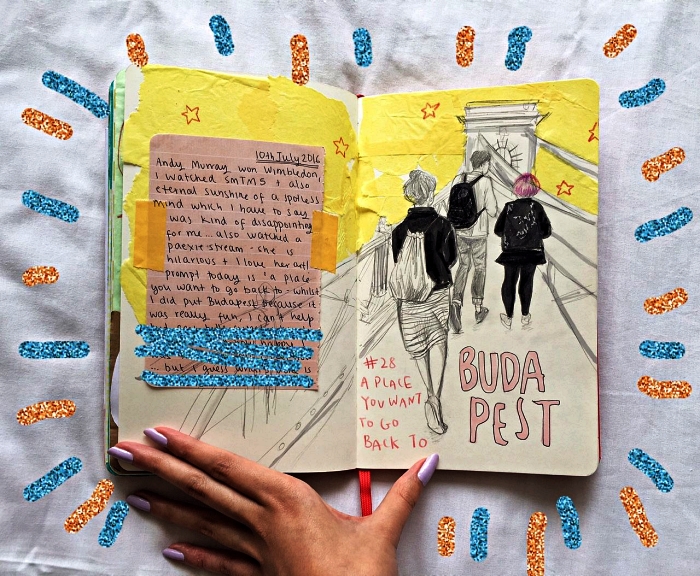 10th July 2016
Andy Murray won Wimbledon,
I watched SMTM5 + also
eternal sunshine of a spotless
mind which I have to say
was kind of disappointing
for me... also watched a
paexie stream - she is
hilarious + I love her art!
prompt today is 'a place
you want to go back to - whilst
I did put Budapest because it
was really fun, I can't help
... but I guess
is
#28
A PLACE
YOU WANT
TO GO
BACK TO
BUDA
PEST